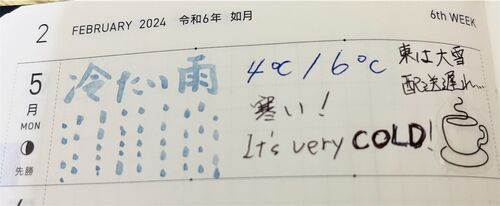 2 FEBRUARY 2024 令和6年 如月 6th WEEK
5
月
MON
先勝
冷たい雨
4℃/6℃
寒い!
It's very COLD!
東は大雪
配送遅れ...